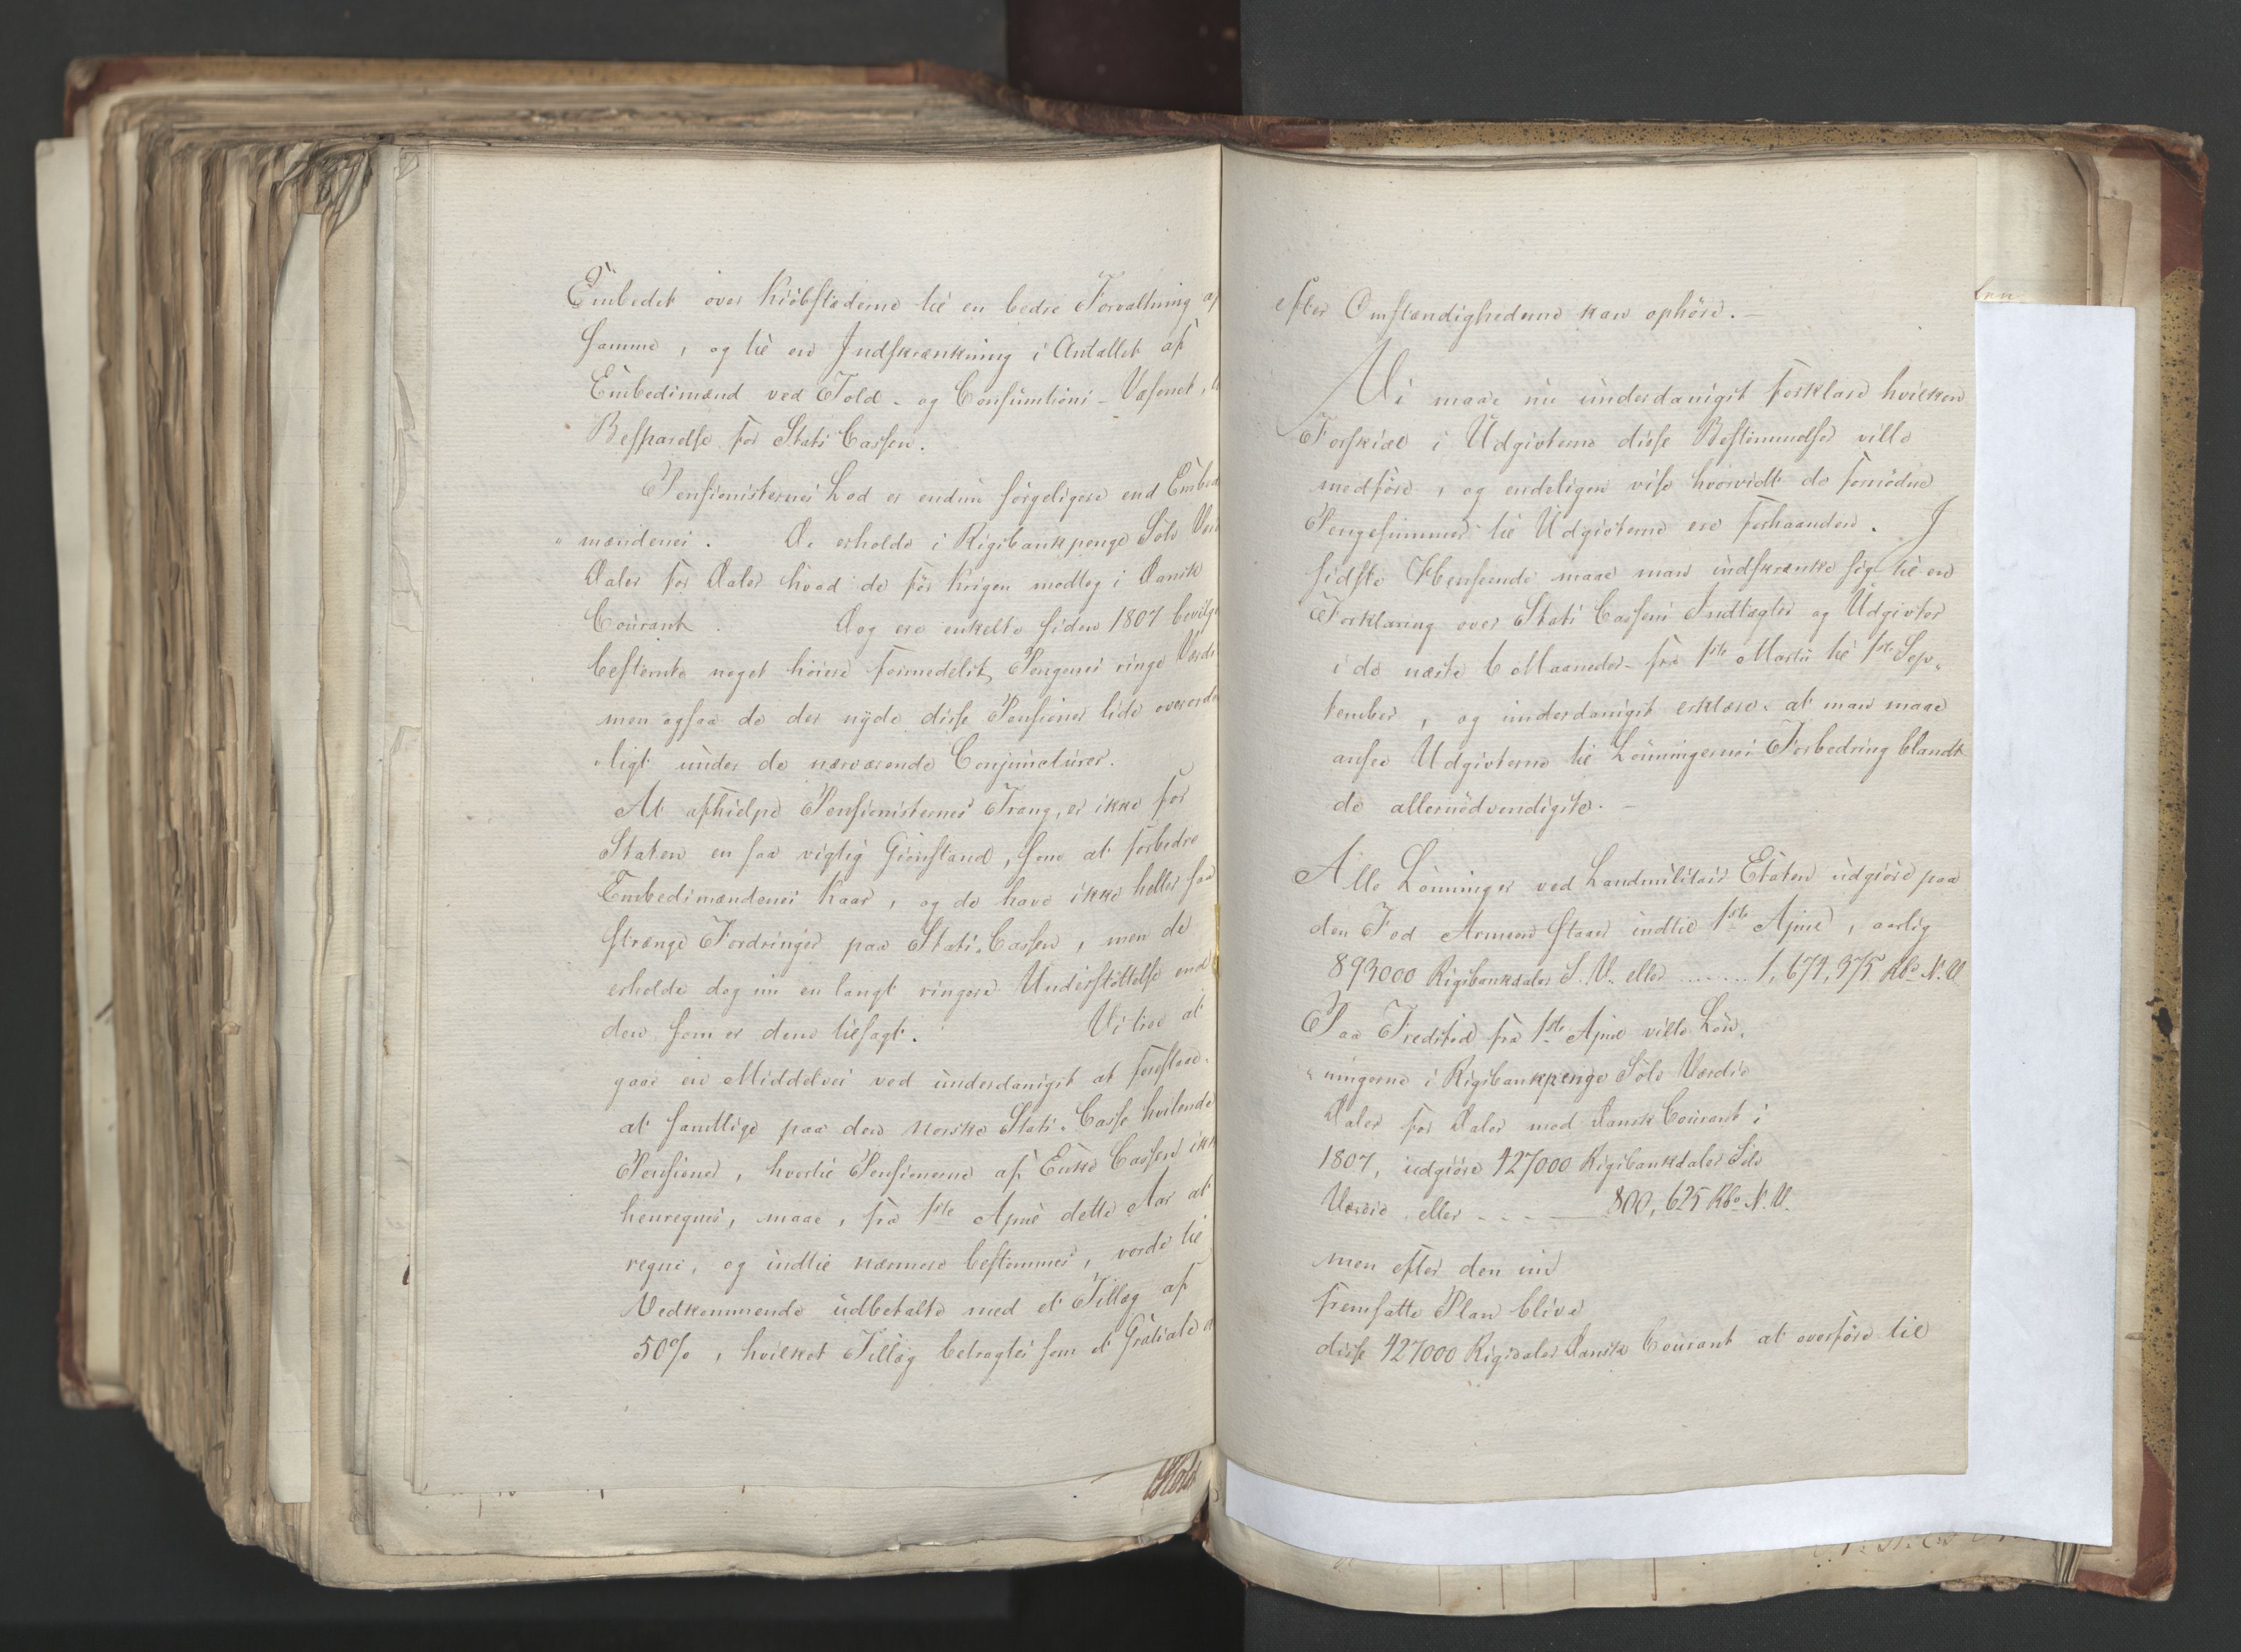 Embedet over Kiöbstæderne til en bedre Forvaltning af
samme, og til en Indskrænkning i Antallet af
Embedsmænd ved Told- og Consumtions-Væsenet,
Besparelse for Stats Cassen.
Pensionisternes Lod er endnu sörgeligere end Embeds
mændenes. De erholde i Rigsbankpenge Sölv Værd
Daler for Daler hvad de för Krigen modtog i Dansk
Courant. Dog ere enkelte siden 1807 bevilge
bestemte noget höiere formedelst Pengenes ringe Værdi
men ogsaa de der nyde disse Pensioner lide overorden
ligt under de nærværende Conjuncturer.
At afhielpe Pensionisternes Trang, er ikke for
Staten en saa vigtig Gienstand, som at forbedre
Embedsmændenes Kaar, og de have ikke heller saa
strænge Fordringer paa Stats-Cassen, men de
erholde dog nu en langt ringere Understöttelse end
den som er dem tilsagt. Vi troe at
gaae en Middelvei ved underdanigst at foreslaae,
at samtlige paa den norske Stats-Casse hvilende
Pensioner, hvortil Pensionerne af Enke Cassen ikke
henregnes, maae, fra 1ste April dette Aar at
regne, og indtil nærmere bestemmes, vorde til
Vedkommende udbetalte med et Tillæg af
50%, hvilket Tillæg betragtes som et Gratiale
efter Omstændighederne kan ophöre. —
Vi maae nu underdanigst forklare hvilken
Forskiæl i Udgivterne disse Bestemmelser ville
medföre, og endeligen vise hvorvidt de fornödne
Pengesummer til Udgivterne ere forhaanden. I
sidste Henseende maae man indskrænke sig til en
Forklaring over Stats Cassens Indtægter og Udgivter
i de næste 6 Maaneder fra 1ste Martii til 1ste Sep-
tember, og underdanigst erklære at man maae
ansee Udgivterne til Lönningernes Forbedring blandt
de allernödvendigste. —
Alle Lönninger ved Landmilitair Etaten udgiöre paa
den Fod Armeen staaer indtil 1ste April, aarlig
893000 Rigsbankdaler S.V. eller ....... 1,674,375 Rbd N.V.
Paa Fredsfod fra 1ste April ville Lön-
ningerne i Rigsbankpenge Sölv Værdie
Daler for Daler mod Dansk Courant i
1807, udgiöre 427000 Rigsbankdaler Sölv
Værdie eller - - - — 800,625 Rbd N.V.
men efter den nu
fremsatte Plan blive
disse 427000 Rigsdaler Dansk Courant at overföre til